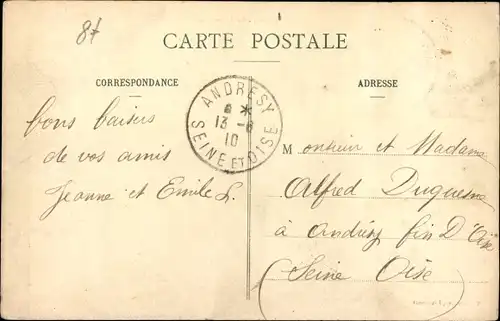 87
CARTE POSTALE
CORRESPONDANCE
ADRESSE
ANDRESY
8 *
13 - 8
10
SEINE ET OISE
bons baisers
de vos amis
Jeanne et Emile L.
Monsieur et Madame
Alfred Duquesne
à Andrésy fin D'Oise
(Seine Oise)